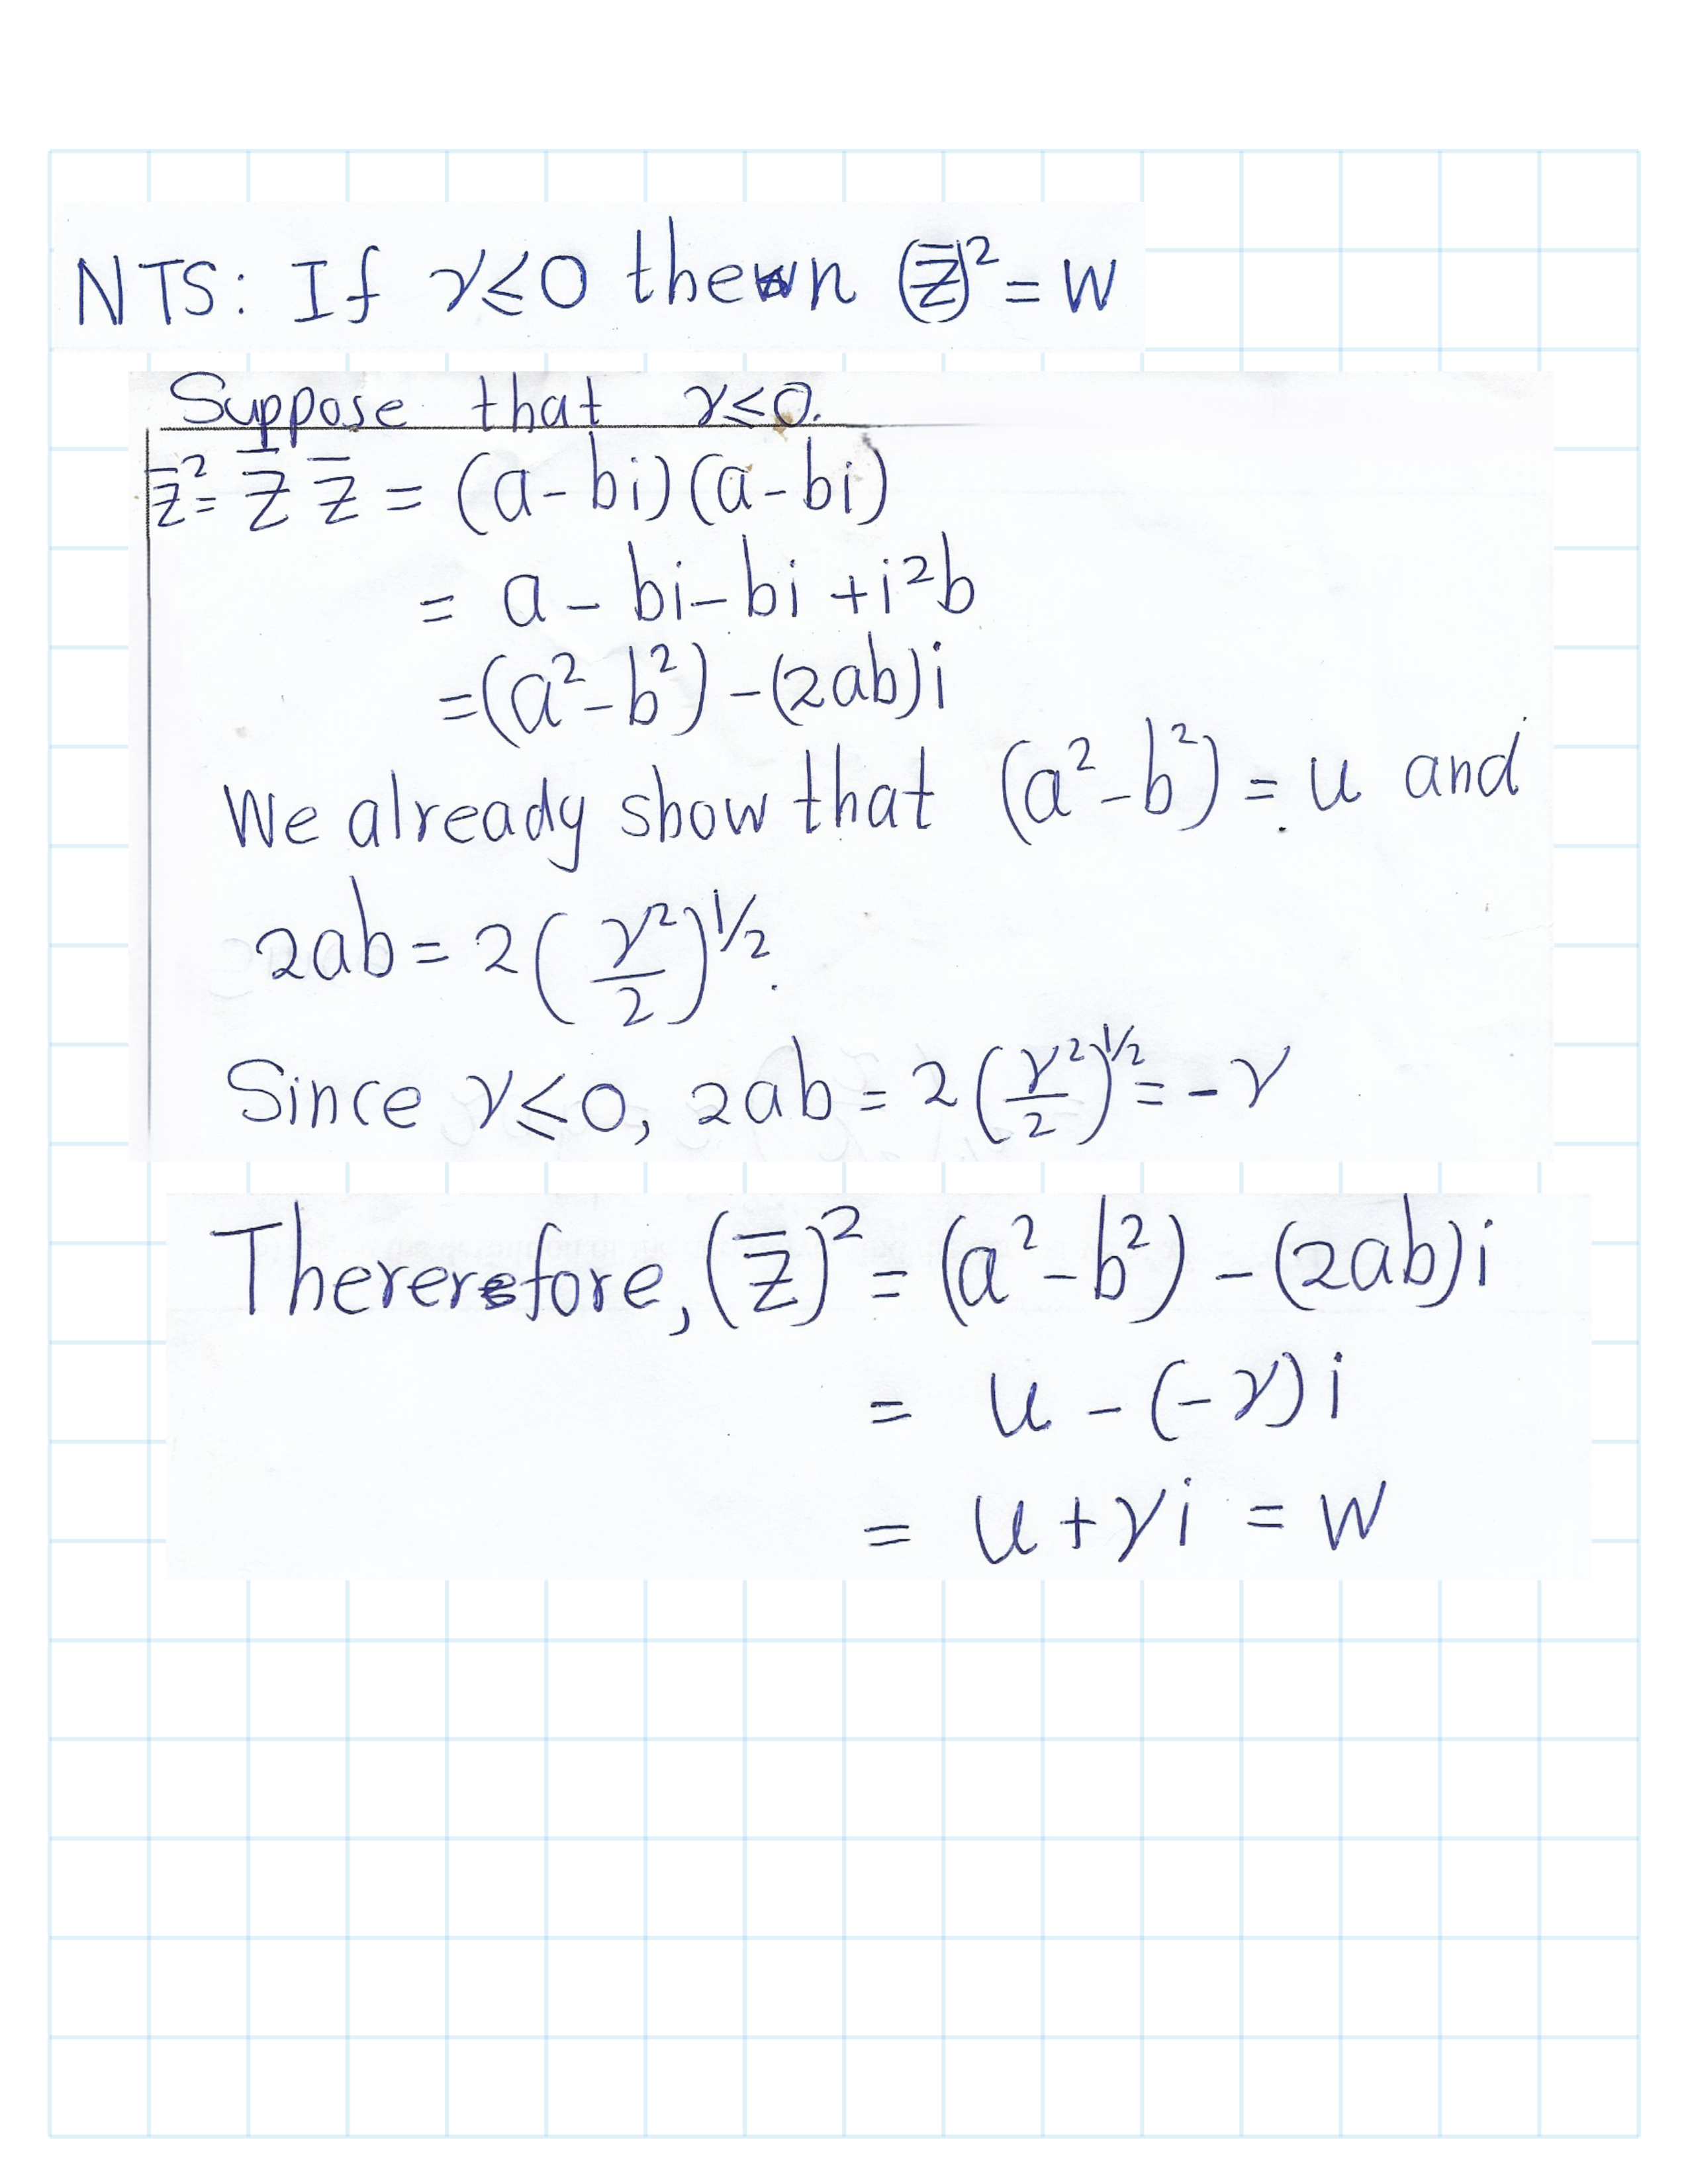 NTS: If γ≤0 then (z̅)² = w
Suppose that γ≤0.
z̅² = z̅ z̅ = (a-bi)(a-bi)
= a - bi - bi + i²b
= (a²-b²) - (2ab)i
We already show that (a²-b²) = u and
2ab = 2(γ²/2)^1/2.
Since γ≤0, 2ab = 2(γ²/2)^1/2 = -γ
Thererefore, (z̅)² = (a²-b²) - (2ab)i
= u - (-γ)i
= u + γi = w